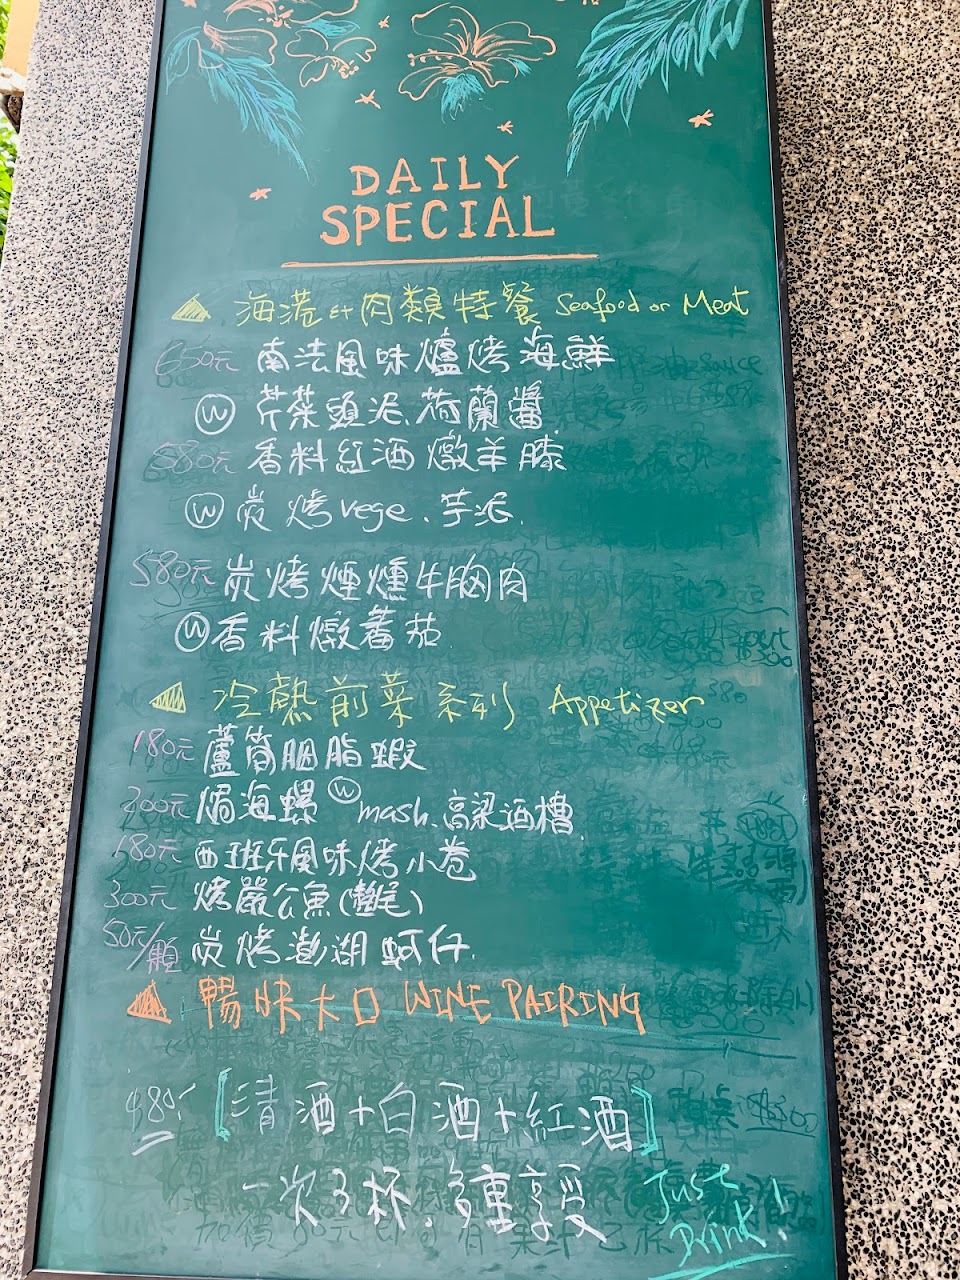 DAILY
SPECIAL
海港or肉類特餐 Seafood or Meat
650元 南法風味爐烤海鮮
W 芹菜頭泥、荷蘭醬
680元 香料紅酒燉羊膝
W 炭烤vege、芋泥
580元 炭烤煙燻牛胸肉
W 香料燉蕃茄
冷熱前菜系列 Appetizer
180元 蘆筍胭脂蝦
200元 焗海螺 W mash、高粱酒糟
180元 西班牙風味烤小卷
300元 烤嚴公魚(雙尾)
50元/顆 炭烤澎湖蚵仔
暢快大口 WINE PAIRING
480 [清酒+白酒+紅酒]
一次3杯,多重享受
Just
Drink!